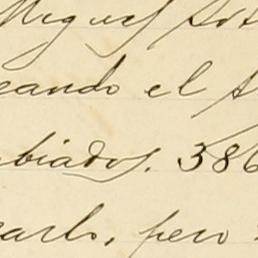 Miguel
eando el
biados. 386
carlo, pero